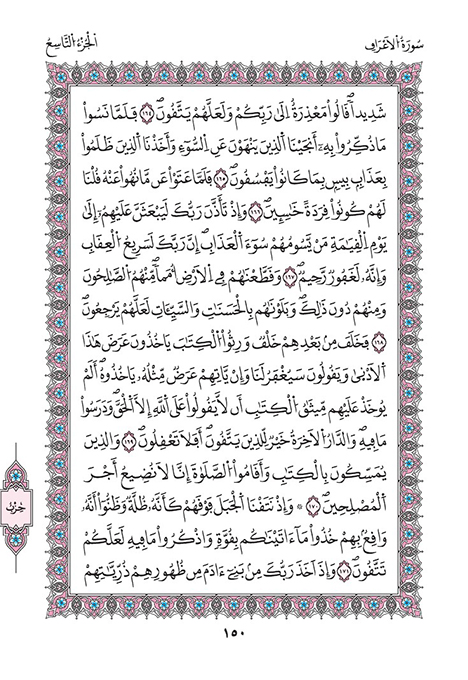 سُورَةُ اُلَاعْرَافِ
اُلْجُزْءُ اُلتَّاسِعُ
شَدِيداٗۖ قَالُواْ مَعْذِرَةٌ اِلَىٰ رَبِّكُمْ وَلَعَلَّهُمْ يَتَّقُونَۖ ١٦٤ فَلَمَّا نَسُواْ
مَا ذُكِّرُواْ بِهِۦٓ أَنجَيْنَا اَ۬لذِينَ يَنْهَوْنَ عَنِ اِ۬لسُّوٓءِ وَأَخَذْنَا اَ۬لذِينَ ظَلَمُواْ
بِعَذَابِۢ بِيسِۢ بِمَا كَانُواْ يَفْسُقُونَۖ ١٦٥ فَلَمَّا عَتَوْاْ عَن مَّا نُهُواْ عَنْهُ قُلْنَا
لَهُمْ كُونُواْ قِرَدَةً خَٰسِـِٕينَۖ ١٦٦ وَإِذْ تَأَذَّنَ رَبُّكَ لَيَبْعَثَنَّ عَلَيْهِمُۥٓ إِلَىٰ
يَوْمِ اِ۬لْقِيَٰمَةِ مَنْ يَّسُومُهُمْ سُوٓءَ اَ۬لْعَذَابِۖ إِنَّ رَبَّكَ لَسَرِيعُ اُ۬لْعِقَابِ
وَإِنَّهُۥ لَغَفُورٞ رَّحِيمٞۖ ١٦٧ وَقَطَّعْنَٰهُمْ فِے اِ۬لَارْضِ أُمَماٗۖ مِّنْهُمُ اُ۬لصَّٰلِحُونَ
وَمِنْهُمْ دُونَ ذَٰلِكَۖ وَبَلَوْنَٰهُم بِالْحَسَنَٰتِ وَالسَّيِّـَٔاتِ لَعَلَّهُمْ يَرْجِعُونَۖ
١٦٨ فَخَلَفَ مِنۢ بَعْدِهِمْ خَلْفٞ وَرِثُواْ اُ۬لْكِتَٰبَ يَاخُذُونَ عَرَضَ هَٰذَا
اَ۬لَادْنَىٰ وَيَقُولُونَ سَيُغْفَرُ لَنَا وَإِنْ يَّاتِهِمْ عَرَضٞ مِّثْلُهُۥ يَاخُذُوهُۖ أَلَمْ
يُوخَذْ عَلَيْهِم مِّيثَٰقُ اُ۬لْكِتَٰبِ أَن لَّا يَقُولُواْ عَلَى اَ۬للَّهِ إِلَّا اَ۬لْحَقَّۖ وَدَرَسُواْ
مَا فِيهِۖ وَالدَّارُ اُ۬لَاخِرَةُ خَيْرٞ لِّلذِينَ يَتَّقُونَۖ أَفَلَا تَعْقِلُونَۖ ١٦٩ وَالذِينَ
يُمَسِّكُونَ بِالْكِتَٰبِ وَأَقَامُواْ اُ۬لصَّلَوٰةَ إِنَّا لَا نُضِيعُ أَجْرَ
اَ۬لْمُصْلِحِينَۖ ١٧٠ ۞ وَإِذْ نَتَقْنَا اَ۬لْجَبَلَ فَوْقَهُمْ كَأَنَّهُۥ ظُلَّةٞ وَظَنُّوٓاْ أَنَّهُۥ
وَاقِعُۢ بِهِمْ خُذُواْ مَآ ءَاتَيْنَٰكُم بِقُوَّةٖ وَاذْكُرُواْ مَا فِيهِ لَعَلَّكُمْ
تَتَّقُونَۖ ١٧١ وَإِذَ اَخَذَ رَبُّكَ مِنۢ بَنِےٓ ءَادَمَ مِن ظُهُورِهِمْ ذُرِّيَّٰتِهِمْ
حِزْبٌ
١٥٠